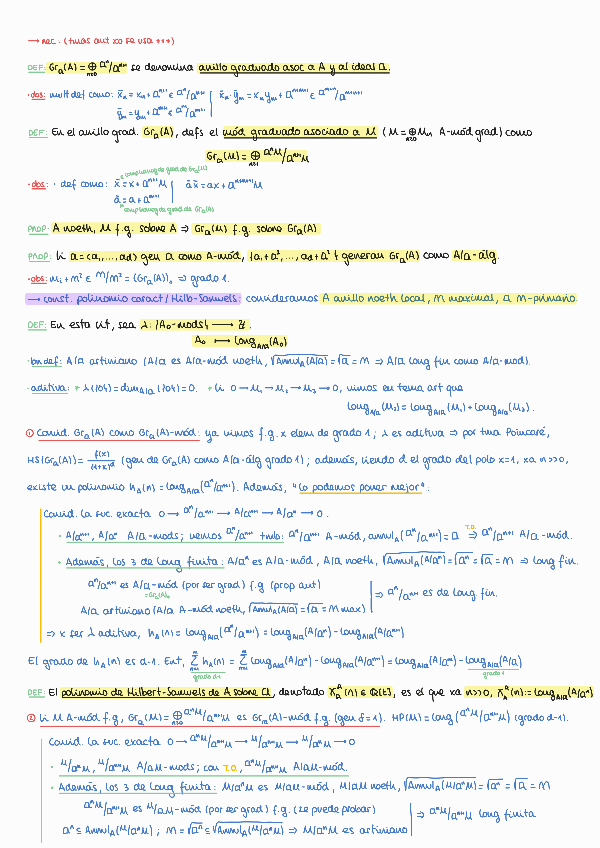 → nec. (tmas ant xo se usa +++)
DEF: Gr_a(A) = ⊕_{n≥0} a^n/a^{n+1} se denomina anillo graduado asoc a A y al ideal a.
·obs: mult def como: x̄_n = x_n + a^{n+1} ∈ a^n/a^{n+1} | x̄_n·ȳ_m = x_n y_m + a^{n+m+1} ∈ a^{n+m}/a^{n+m+1}
ȳ_m = y_m + a^{m+1} ∈ a^m/a^{m+1}
DEF: En el anillo grad. Gr_a(A), defs el mód graduado asociado a M (M = ⊕_{n≥0} M_n A-mód grad) como
Gr_a(M) = ⊕_{n≥1} a^n M/a^{n+1} M
comp homog de grad de Gr_a(M)
·obs: · def como: x̄ = x + a^{n+1} M | ā x̄ = ax + a^{n+m+1} M
ā = a + a^{m+1}
comp homog de grad de Gr_a(A)
PROP: A noeth, M f.g. sobre A ⇒ Gr_a(M) f.g. sobre Gr_a(A)
PROP: Si a = (a_1, ..., a_d) gen a como A-mód, {a_1 + a^2, ..., a_d + a^2} generan Gr_a(A) como A/a-álg.
·obs: m_i + m^2 ∈ m/m^2 = (Gr_a(A))_1 ⇒ grado 1.
→ const. polinomio caract/Hilb-Samuels: consideramos A anillo noeth local, m maximal, a m-primario.
DEF: En esta sit, sea λ: {A_0-mods} → Z.
A_0 ↦ long_{A/a}(A_0)
·bondef: A/a artiniano (A/a es A/a-mód noeth, √Annul_A(A/a) = √a = m ⇒ A/a long fin como A/a-mod).
·aditiva: * λ(0) = dim_{A/a}(0) = 0. * Si 0 → M_1 → M_2 → M_3 → 0, vimos en tema art que
long_{A/a}(M_2) = long_{A/a}(M_1) + long_{A/a}(M_3).
① Consid. Gr_a(A) como Gr_a(A)-mód: ya vimos f.g. x elem de grado 1; λ es aditiva ⇒ por tma Poincaré,
HS(Gr_a(A)) = f(x)/(1-x)^d (gen de Gr_a(A) como A/a-álg grado 1); además, siendo d el grado del polo x=1, xa n>>0,
existe un polinomio h_A(n) = long_{A/a}(a^n/a^{n+1}). Además, "lo podemos poner mejor".
Consid. la suc. exacta 0 → a^n/a^{n+1} → A/a^{n+1} → A/a^n → 0.
· A/a^{n+1}, A/a^n A/a-mods; vemos a^n/a^{n+1} tmb: a^n/a^{n+1} A-mód, annul_A(a^n/a^{n+1}) = a ⇒ a^n/a^{n+1} A/a-mód.
· Además, los 3 de long finita: A/a^n es A/a-mód, A/a noeth, √Annul_A(A/a^n) = √a^n = √a = m ⇒ long fin.
a^n/a^{n+1} es A/a-mód (por ser grad) f.g (prop ant) | ⇒ a^n/a^{n+1} es de long fin.
A/a artiniano (A/a A-mód noeth, √Annul_A(A/a) = √a = m max)
⇒ x ser λ aditiva, h_A(n) = long_{A/a}(a^n/a^{n+1}) = long_{A/a}(A/a^{n+1}) - long_{A/a}(A/a^n)
El grado de h_A(n) es d-1. Ent,
DEF: El polinomio de Hilbert-Samuels de A sobre a, denotado χ_a^A(n) ∈ Q[t], es el que xa n>>0, χ_a^A(n) := long_{A/a}(A/a^n)
② Si M A-mód f.g, Gr_a(M) = ⊕_{n≥0} a^n M/a^{n+1} M es Gr_a(A)-mód f.g. (gen s=1). HP(M) = long(a^n M/a^{n+1} M) (grado d-1).
Consid. la suc. exacta 0 → a^n M/a^{n+1} M → M/a^{n+1} M → M/a^n M → 0
· M/a^{n+1} M, M/a^n M A/a-mods; con T.O., a^n M/a^{n+1} M A/a-mód.
· Además, los 3 de long finita: M/a^n M es A/a-mód, M/a^n M noeth, √Annul_A(M/a^n M) = √a^n = √a = m
a^n M/a^{n+1} M es A/a-mód (por ser grad) f.g. (se puede probar) | ⇒ a^n M/a^{n+1} M long finita
a^n ⊆ Annul_A(M/a^n M); m = √a^n ⊆ √Annul_A(M/a^n M) ⇒ M/a^n M es artiniano